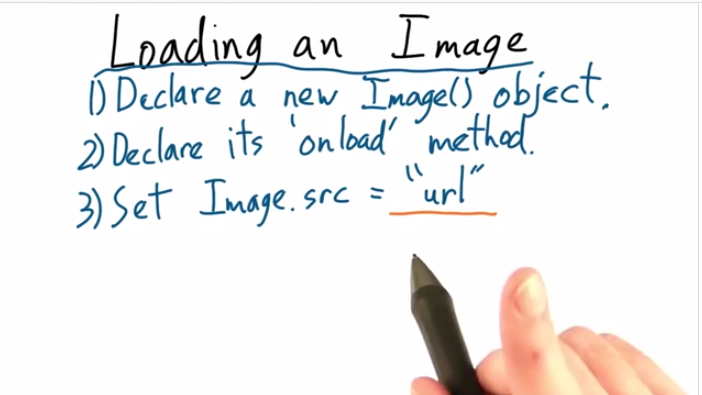 Loading an Image
1) Declare a new Image() object.
2) Declare its 'onload' method.
3) Set Image.src = "url"